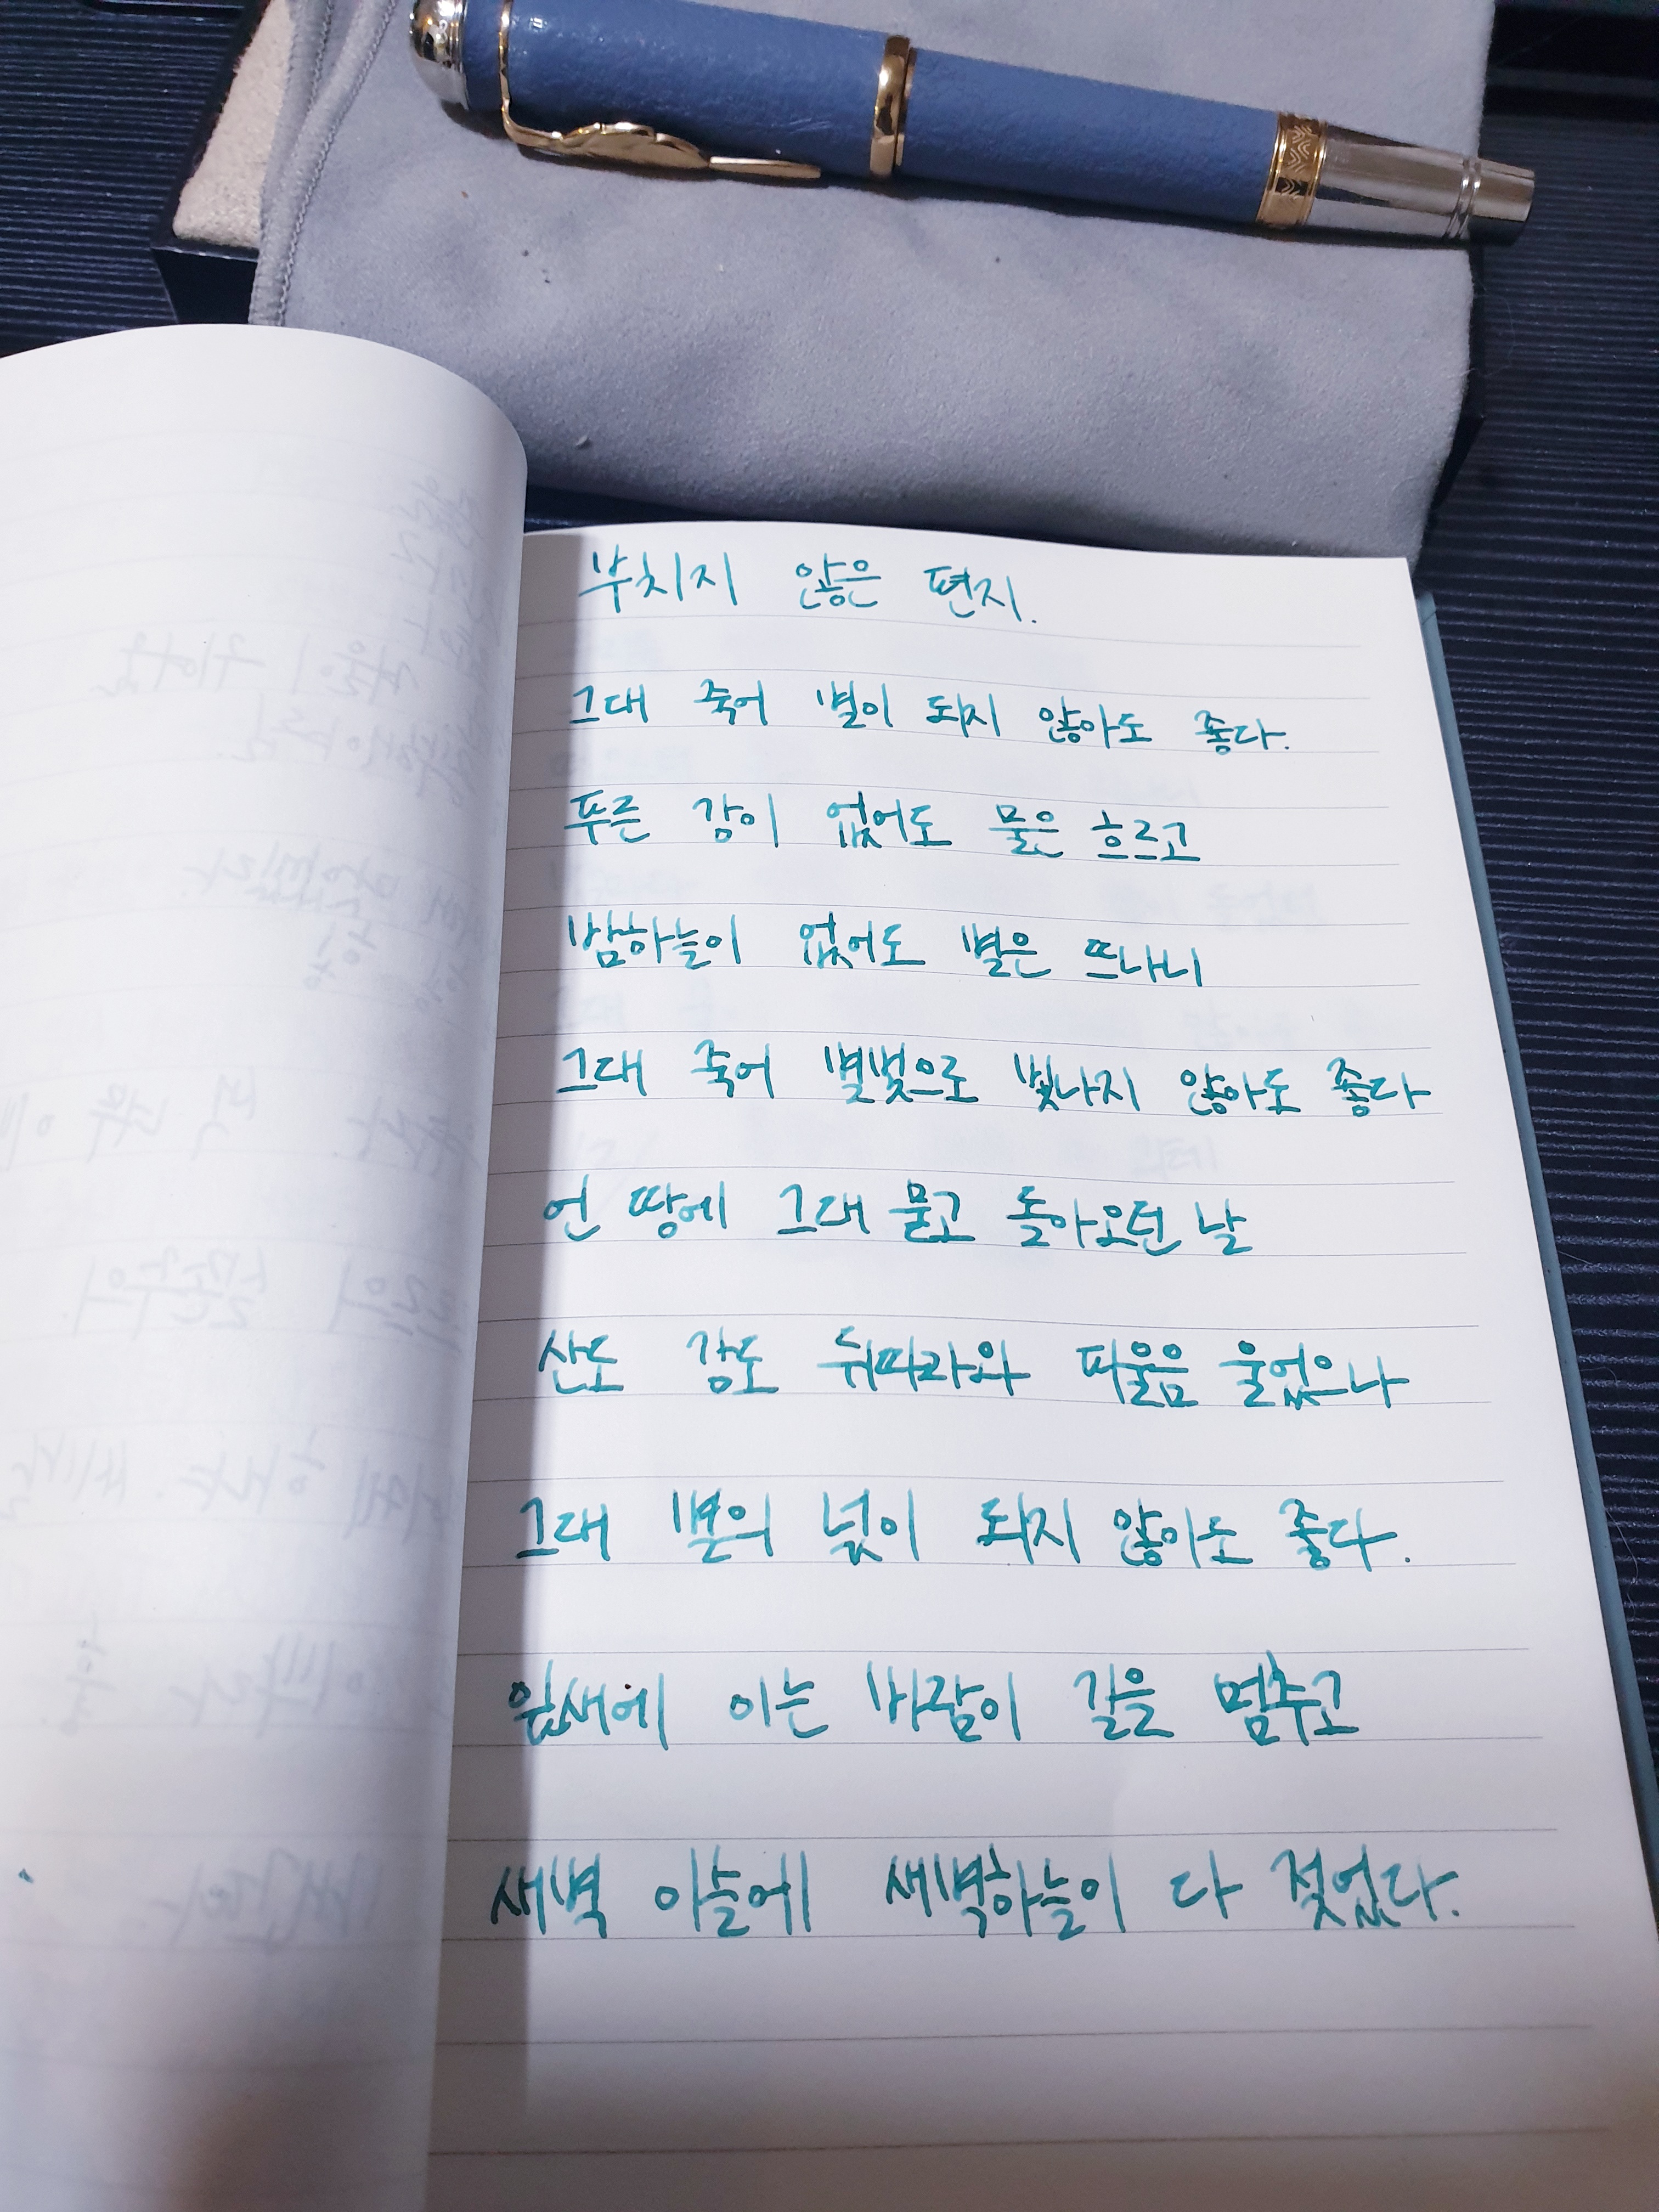 부치지 않은 편지.
그대 죽어 별이 되지 않아도 좋다.
푸른 강이 없어도 물은 흐르고
밤하늘이 없어도 별은 뜨나니
그대 죽어 별빛으로 빛나지 않아도 좋다
언 땅에 그대 묻고 돌아오던 날
산도 강도 뒤따라와 피울음 울었으나
그대 별의 넋이 되지 않아도 좋다.
잎새에 이는 바람이 길을 멈추고
새벽 이슬에 새벽하늘이 다 젖었다.